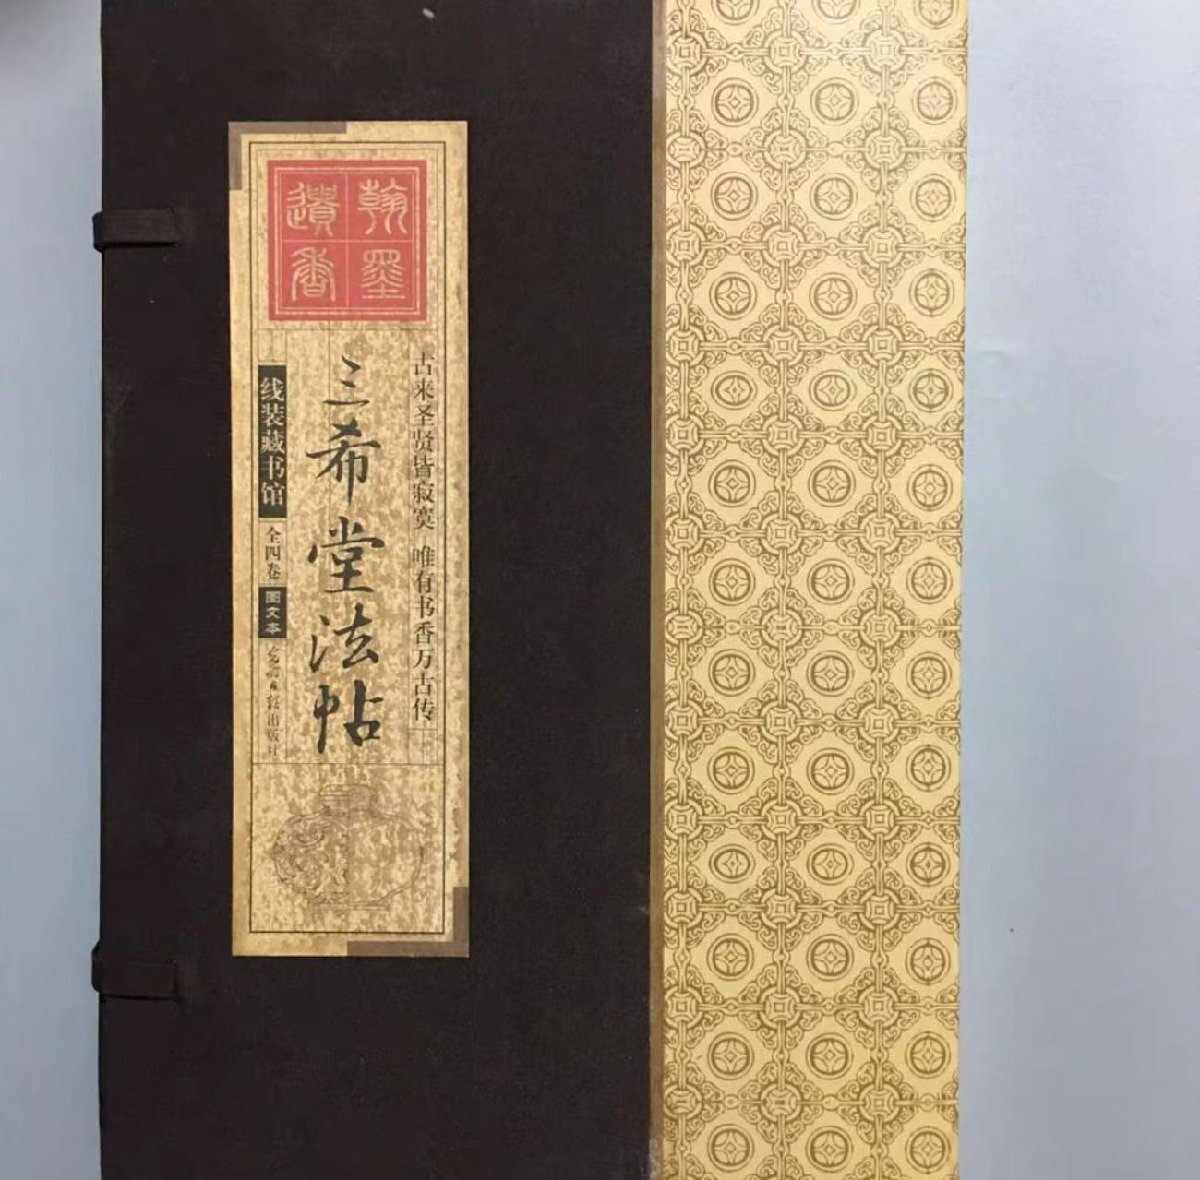 翰墨
遗香
古来圣贤皆寂寞 唯有书香万古传
三希堂法帖
线装藏书馆
全四卷
图文本
光明日报出版社